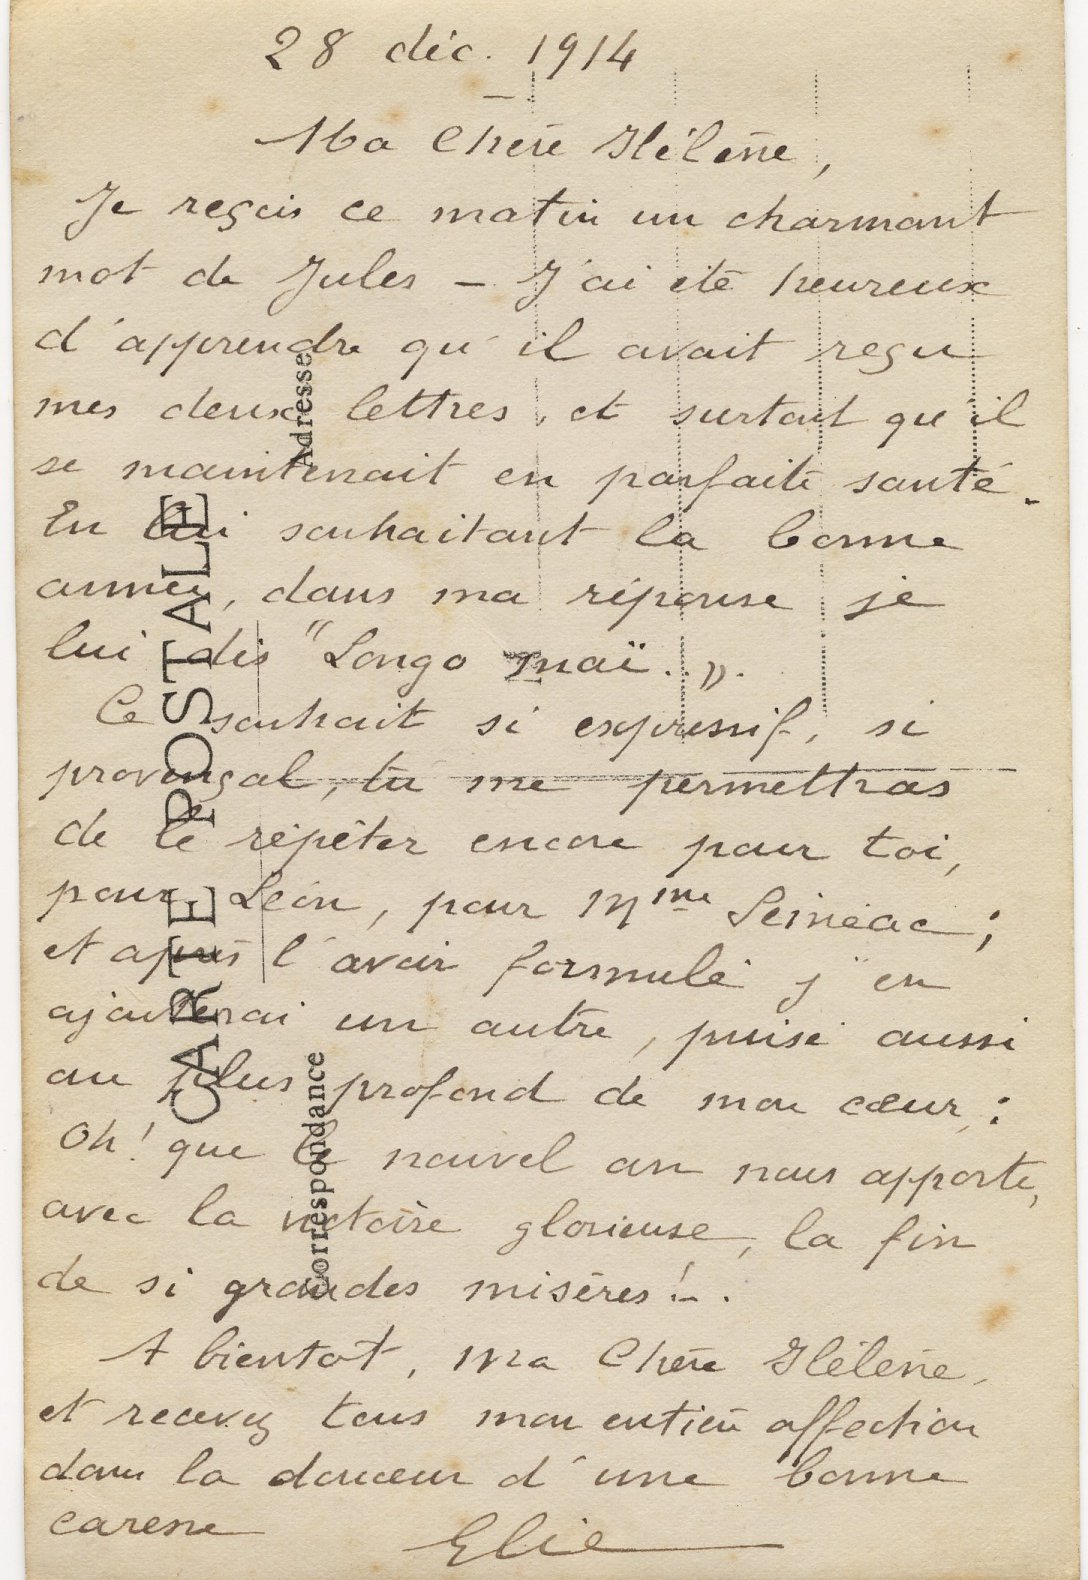 28 déc. 1914
Ma Chère Hélène,
Je reçois ce matin un charmant
mot de Jules – J'ai été heureux
d'apprendre qu'il avait reçu
mes deux lettres, et surtout qu'il
se maintenait en parfaite santé.
En lui souhaitant la bonne
année, dans ma réponse je
lui dis "Longo maï..».
Ce souhait si expressif, si
provençal, tu me permettras
de le répéter encore pour toi,
pour Léon, pour Mme
et après l'avoir formulé j'en
ajouterai un autre, puisé aussi
au plus profond de mon cœur,:
Oh! que le nouvel an nous apporte,
avec la victoire glorieuse, la fin
de si grandes misères! – .
A bientôt, ma Chère Hélène,
et recevez tous mon entière affection
dans la douceur d'une bonne
caresse
Elie
CARTE POSTALE
Correspondance
Adresse